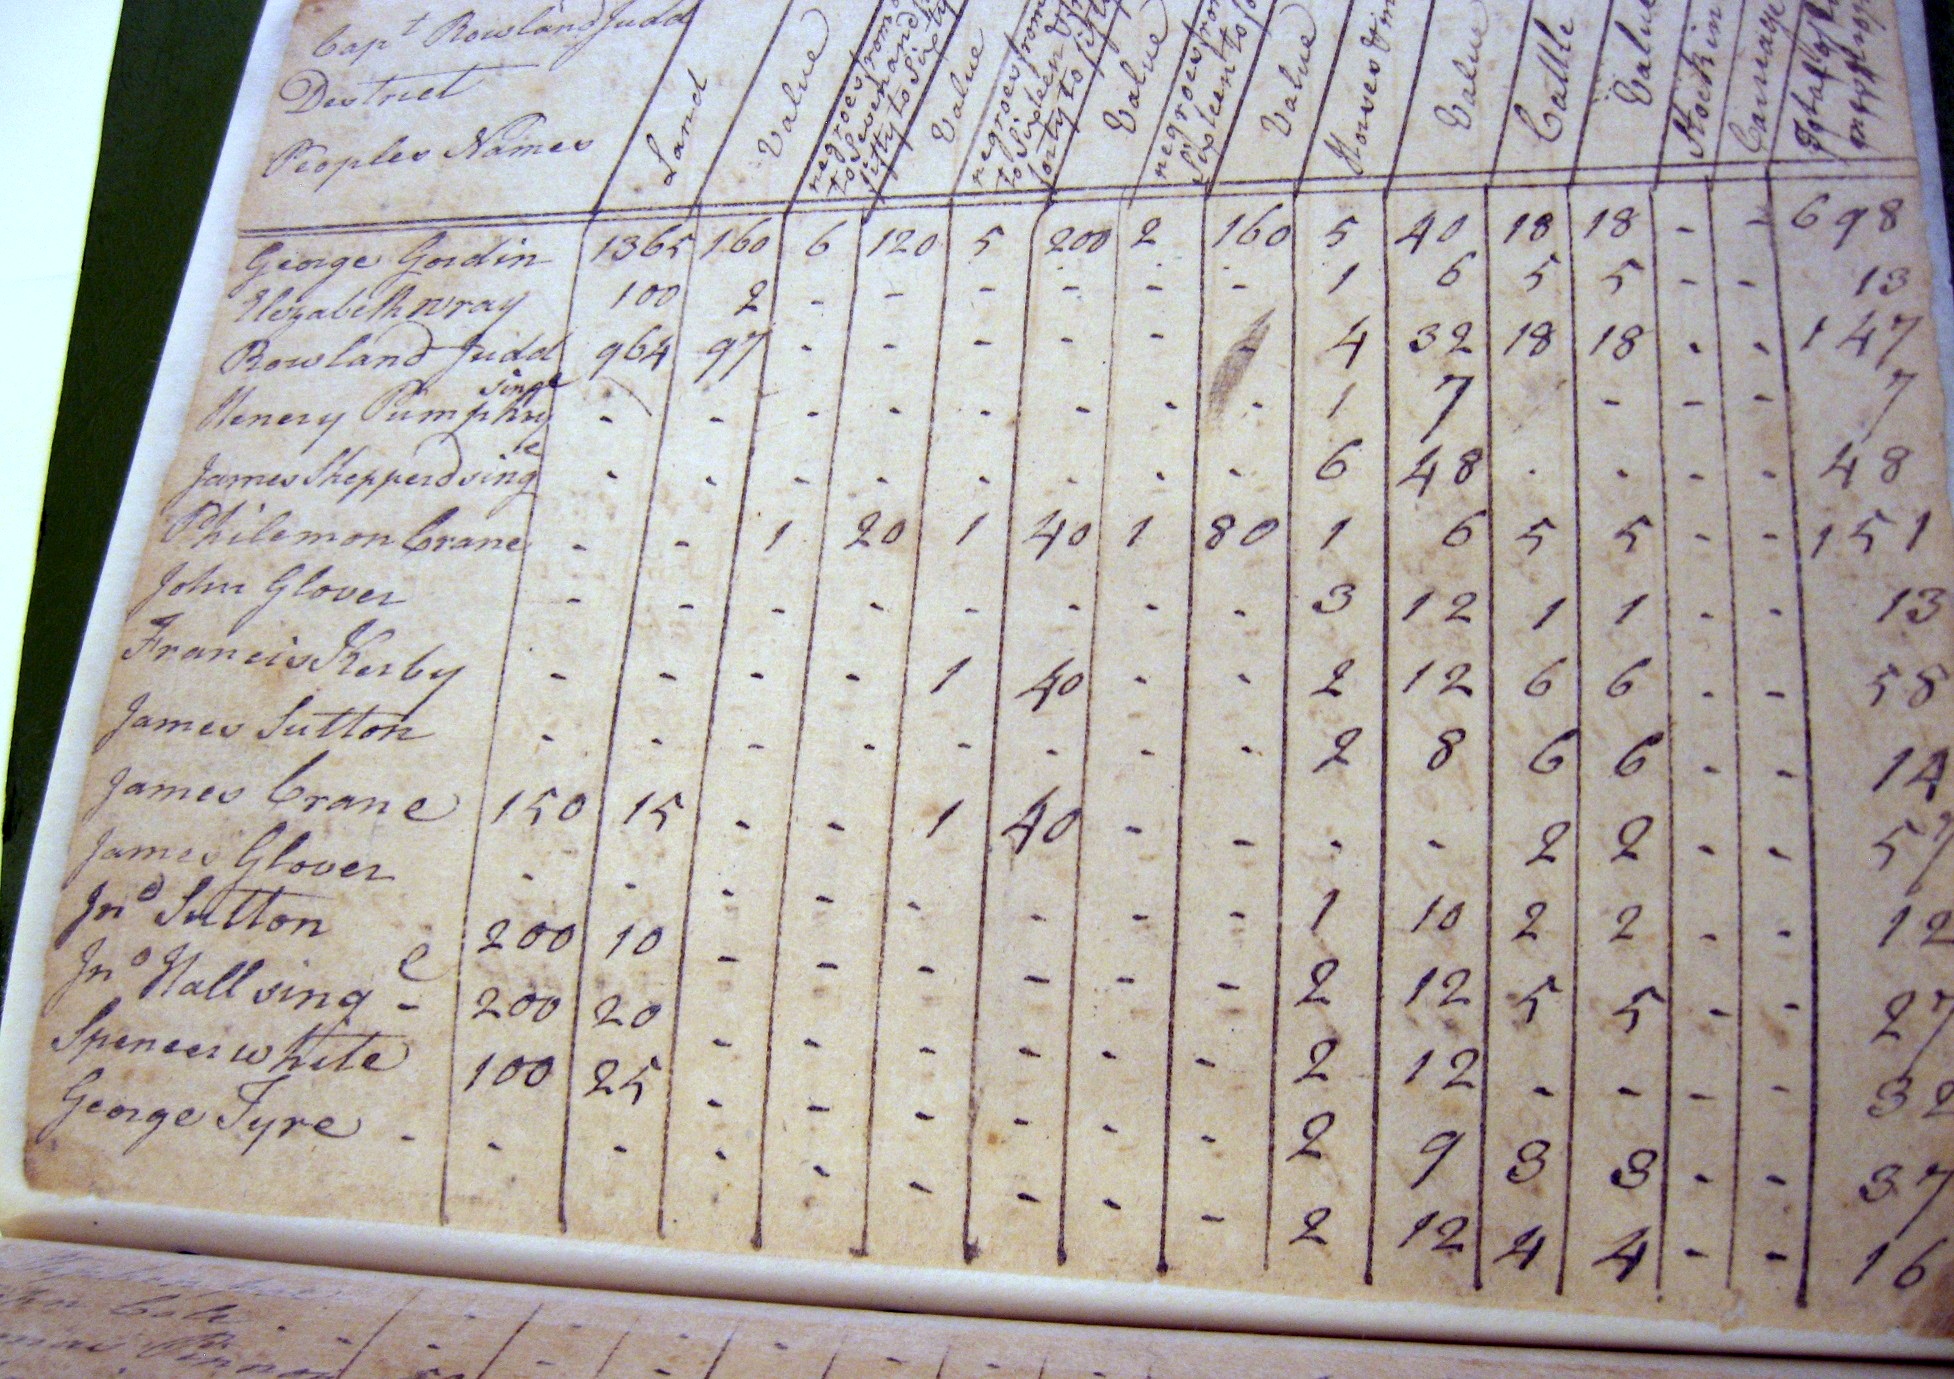 Capt Rowland Judd
District
Peoples Names Land Value negroes from to Seven and fifty to Sixty Value negroes from to Sixteen & forty to fifty Value negroes from Sixteen to Value Horses & Value Cattle Value Stock in Carriage Total
George Gordin 1365 160 6 120 5 200 2 160 5 40 18 18 - - 698
Elezabeth wray 100 2 - - - - - - 1 6 5 5 - - 13
Rowland Judd 964 97 - - - - - - 4 32 18 18 - - 147
Henery Pumphry single - - - - - - - - 1 7 - - - 7
James Shepperd single - - - - - - - - 6 48 - - - - 48
Philemon Crane - - 1 20 1 40 1 80 1 6 5 5 - - 151
John Glover - - - - - - - - 3 12 1 1 - - 13
Francis Kerby - - - - 1 40 - - 2 12 6 6 - - 58
James Sutton - - - - - - - - 2 8 6 6 - - 14
James Crane 150 15 - - 1 40 - - - - 2 2 - - 57
James Glover - - - - - - - - 1 10 2 2 - - 12
Jno Sutton 200 10 - - - - - - 2 12 5 5 - - 27
Jno Hall single - 200 20 - - - - - - 2 12 - - - - 32
Spencer white 100 25 - - - - - - 2 9 3 3 - - 37
George Tyre - - - - - - - - - 2 12 4 4 - - 16